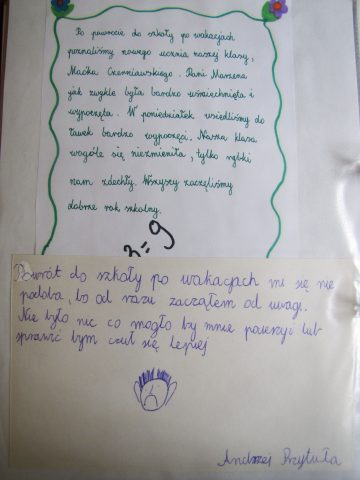 Po powrocie do szkoły po wakacjach
poznaliśmy nowego ucznia naszej klasy,
Maćka Czerniawskiego. Pani Marzena
jak zwykle była bardzo uśmiechnięta i
wypoczęta. W poniedziałek usiedliśmy do
ławek bardzo wypoczęci. Nasza klasa
wogóle się niezmieniła, tylko rybki
nam zdechły. Wszyscy zaczęliśmy
dobrze rok szkolny.
3=9
Powrót do szkoły po wakacjach mi się nie
podoba, bo od razu zacząłem od uwagi.
Nie było nic co mogło by mnie pocieszyć lub
sprawić bym czuł się lepiej
Andrzej Przytuła